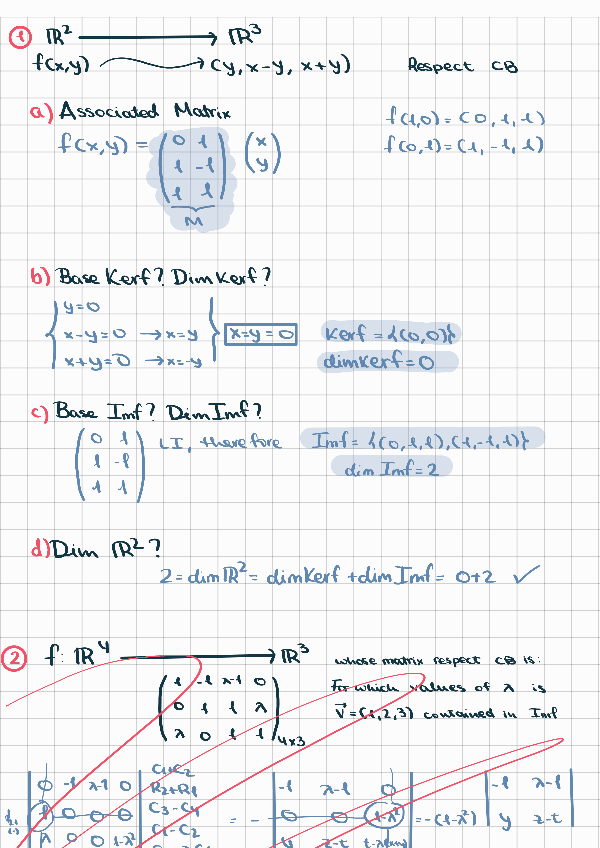 1 ℝ² ⟶ ℝ³
f(x,y) ⟶ (y, x-y, x+y) Respect CB
a) Associated Matrix
f(1,0) = (0, 1, 1)
f(x,y) = (0 1; 1 -1; 1 1) (x; y)
f(0,1) = (1, -1, 1)
M
b) Base Kerf? Dim Kerf?
y=0
x-y=0 → x=y
x+y=0 → x=-y
x=y=0
Kerf = {(0,0)}
dimkerf = 0
c) Base Imf? Dim Imf?
(0 1; 1 -1; 1 1) LI, therefore Imf = {(0,1,1),(1,-1,1)}
dim Imf = 2
d) Dim ℝ²?
2 = dim ℝ² = dimKerf + dim Imf = 0+2 ✓
2 f: ℝ⁴ ⟶ ℝ³
whose matrix respect CB is:
(1 -1 λ-1 0; 0 1 1 λ; λ 0 1 1) 4x3
For which values of λ is
v⃗ = (1,2,3) contained in Imf
0 -1 λ-1 0
1 0 0 0
λ 0 0 1-λ²
C1+C2
R2+R1
C3-C4
C1-C2
= -
-1 λ-1 0
0 0 1-λ²
y z-t
= -(1-λ²)
-1 λ-1
y z-t